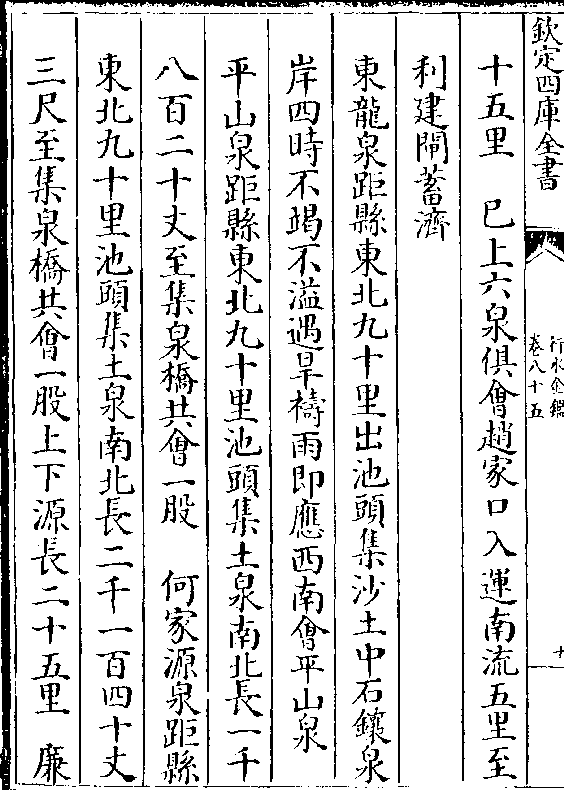 欽定四庫全書
行水金鑑
卷八十五
十
十五里　已上六泉俱會趙家口入運南流五里至
利建閘蓄濟
東龍泉距縣東北九十里出池頭集沙土中石鑲泉
岸四時不竭不溢遇旱禱雨即應西南會平山泉
平山泉距縣東北九十里池頭集土泉南北長一千
八百二十丈至集泉橋共會一股　何家源泉距縣
東北九十里池頭集土泉南北長二千一百四十丈
三尺至集泉橋共會一股上下源長二十五里　廉